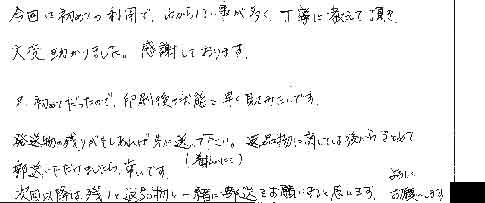 今回は初めての利用で、分からない事が多く、丁寧に教えて頂き
大変助かりました。感謝しております。
又、初めてだったので、印刷後の状態を早く見てみたいです。
発送物の残りがもしあれば先に送って下さい。返品物に関しては後からまとめて
郵送いただけましたら幸いです。
次回以降は残りと返品物を一緒に郵送をお願いすると思います。
よろしく
お願いします